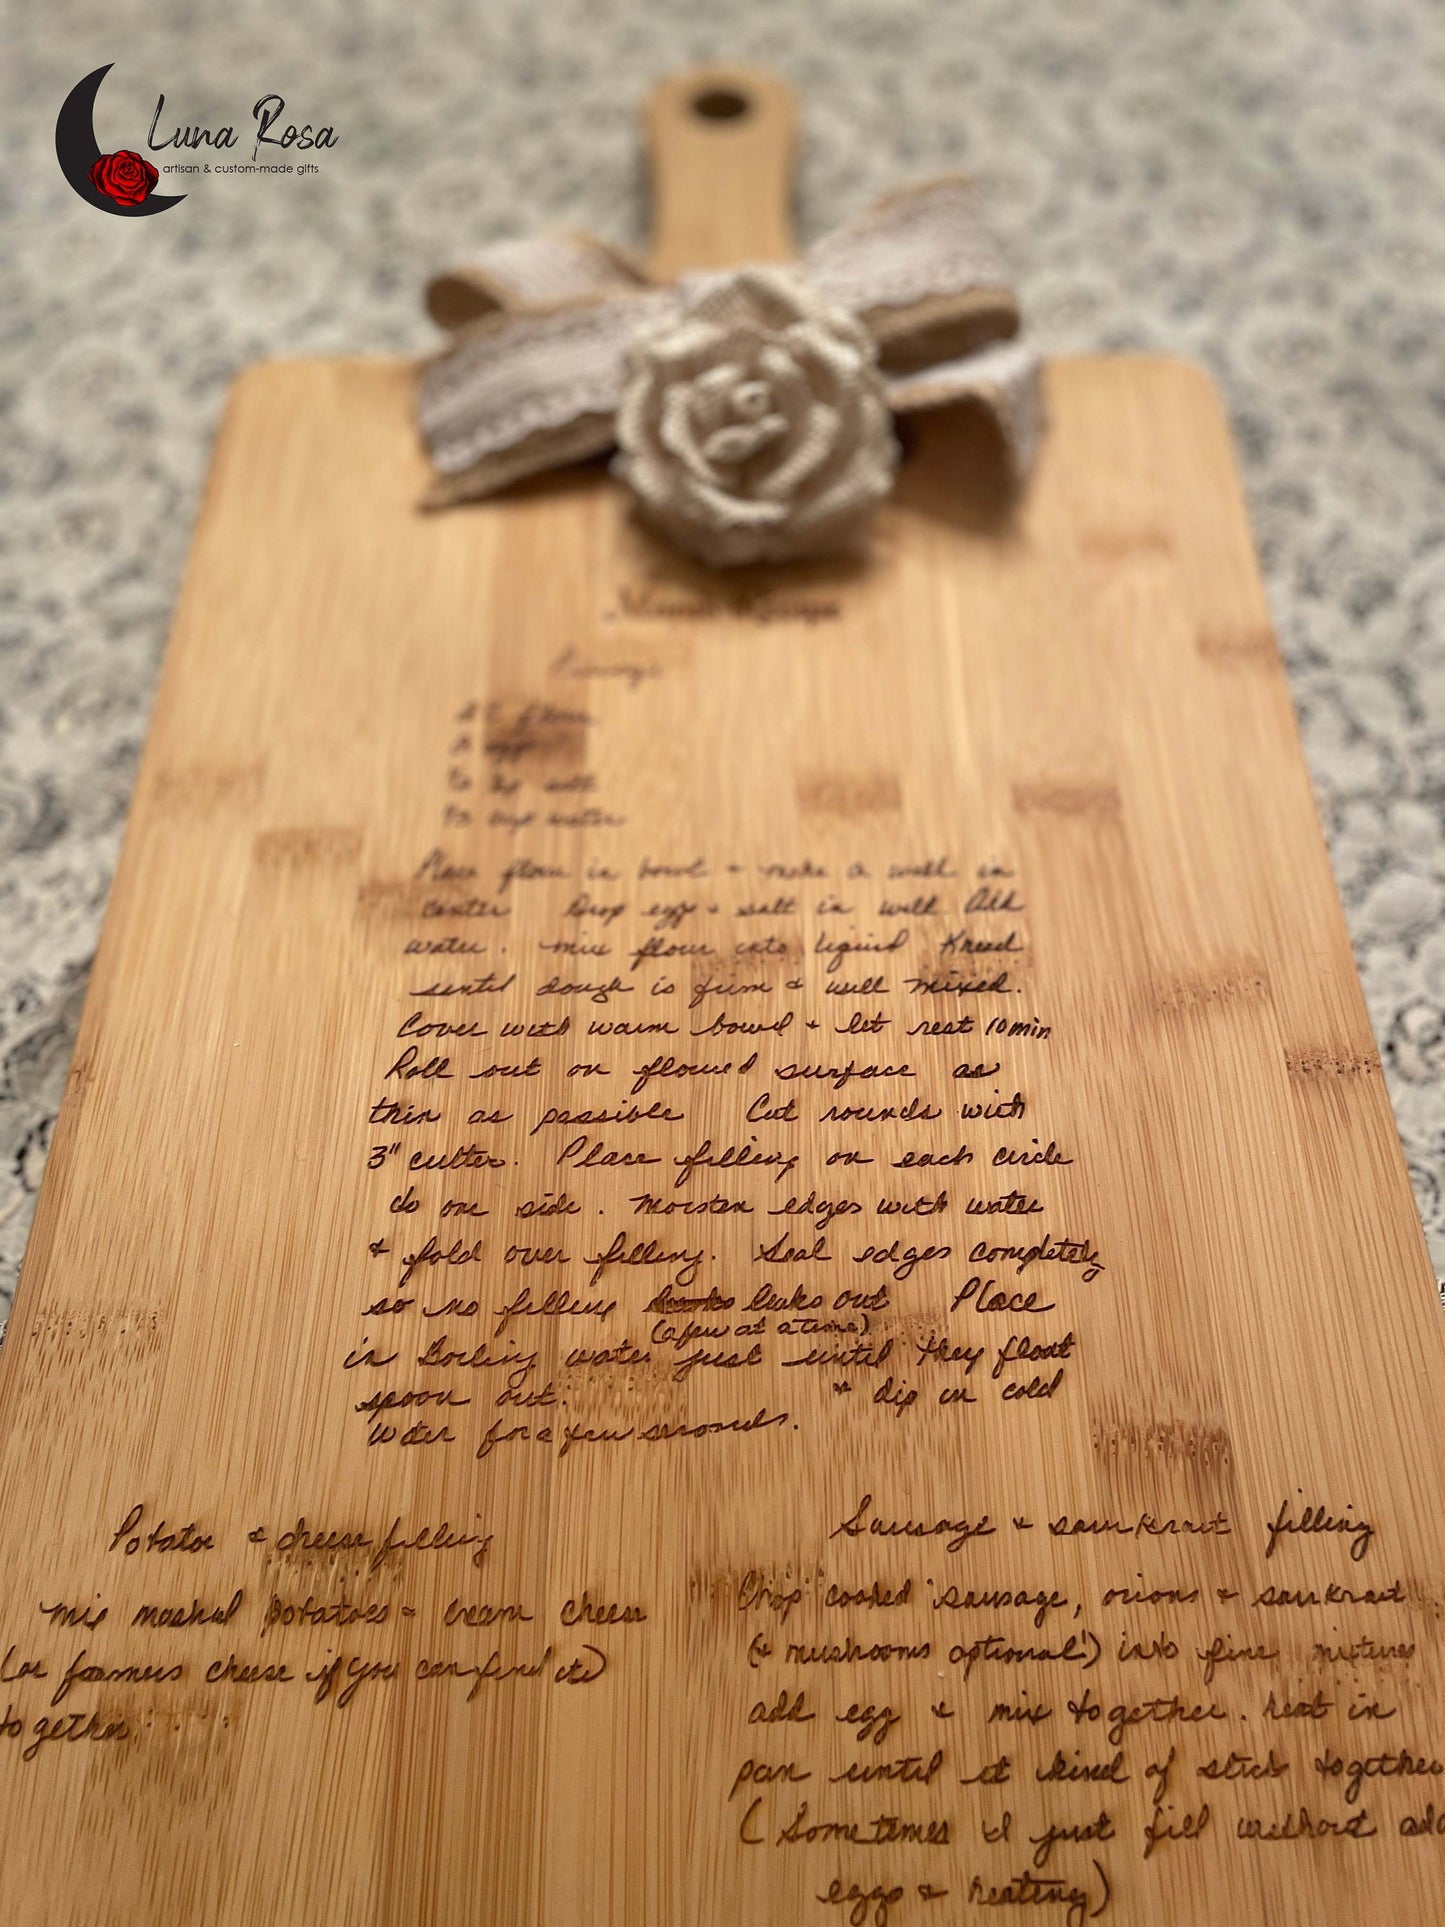 Luna Rosa
artisan & custom-made gifts
flour
salt
cup water
Place flour in bowl + make a well in
center Drop egg + salt in well Add
water. mix flour into liquid Knead
until dough is firm & well mixed.
Cover with warm bowl + let rest 10 min
Roll out on floured surface as
thin as possible Cut rounds with
3" cutter. Place filling on each circle
to one side. Moisten edges with water
& fold over filling. Seal edges completely
so no filling leaks out Place
(a few at a time)
in Boiling water just until they float
spoon out. * dip in cold
water for a few seconds.
Potato & cheese filling
mix mashed potatoes & cream cheese
(or farmers cheese if you can find it)
together
Sausage & saurkraut filling
Chop cooked sausage, onions & saurkraut
(& mushrooms optional) into fine mixture
add egg & mix together. heat in
pan until it kind of sticks together
(Sometimes I just fill without add
eggs & heating)